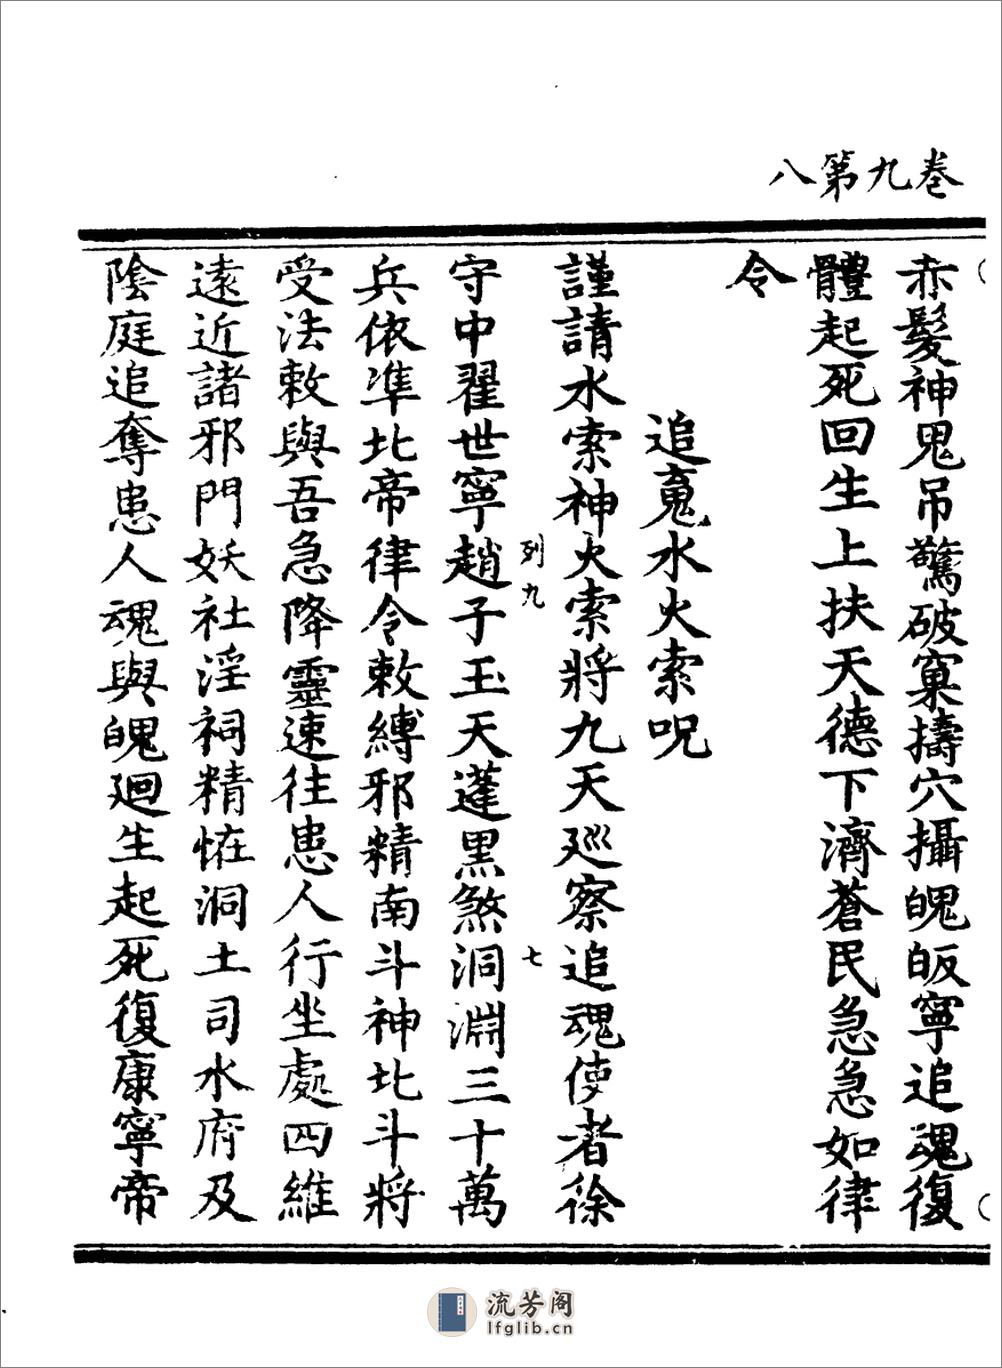 八第九卷
赤髮神鬼吊驚破窠擣穴攝魄皈寧追魂復
體起死回生上扶天德下濟蒼民急急如律
令
追䰟水火索呪
謹請水索神火索將九天廵察追魂使者徐
列九 七
守中翟世寧趙子玉天蓬黑煞洞淵三十萬
兵依準北帝律令敕縛邪精南斗神北斗將
受法敕與吾急降靈速往患人行坐處四維
遠近諸邪門妖社淫祠精恠洞土司水府及
陰庭追奪患人魂與魄廻生起死復康寧帝
流芳阁
lfglib.cn